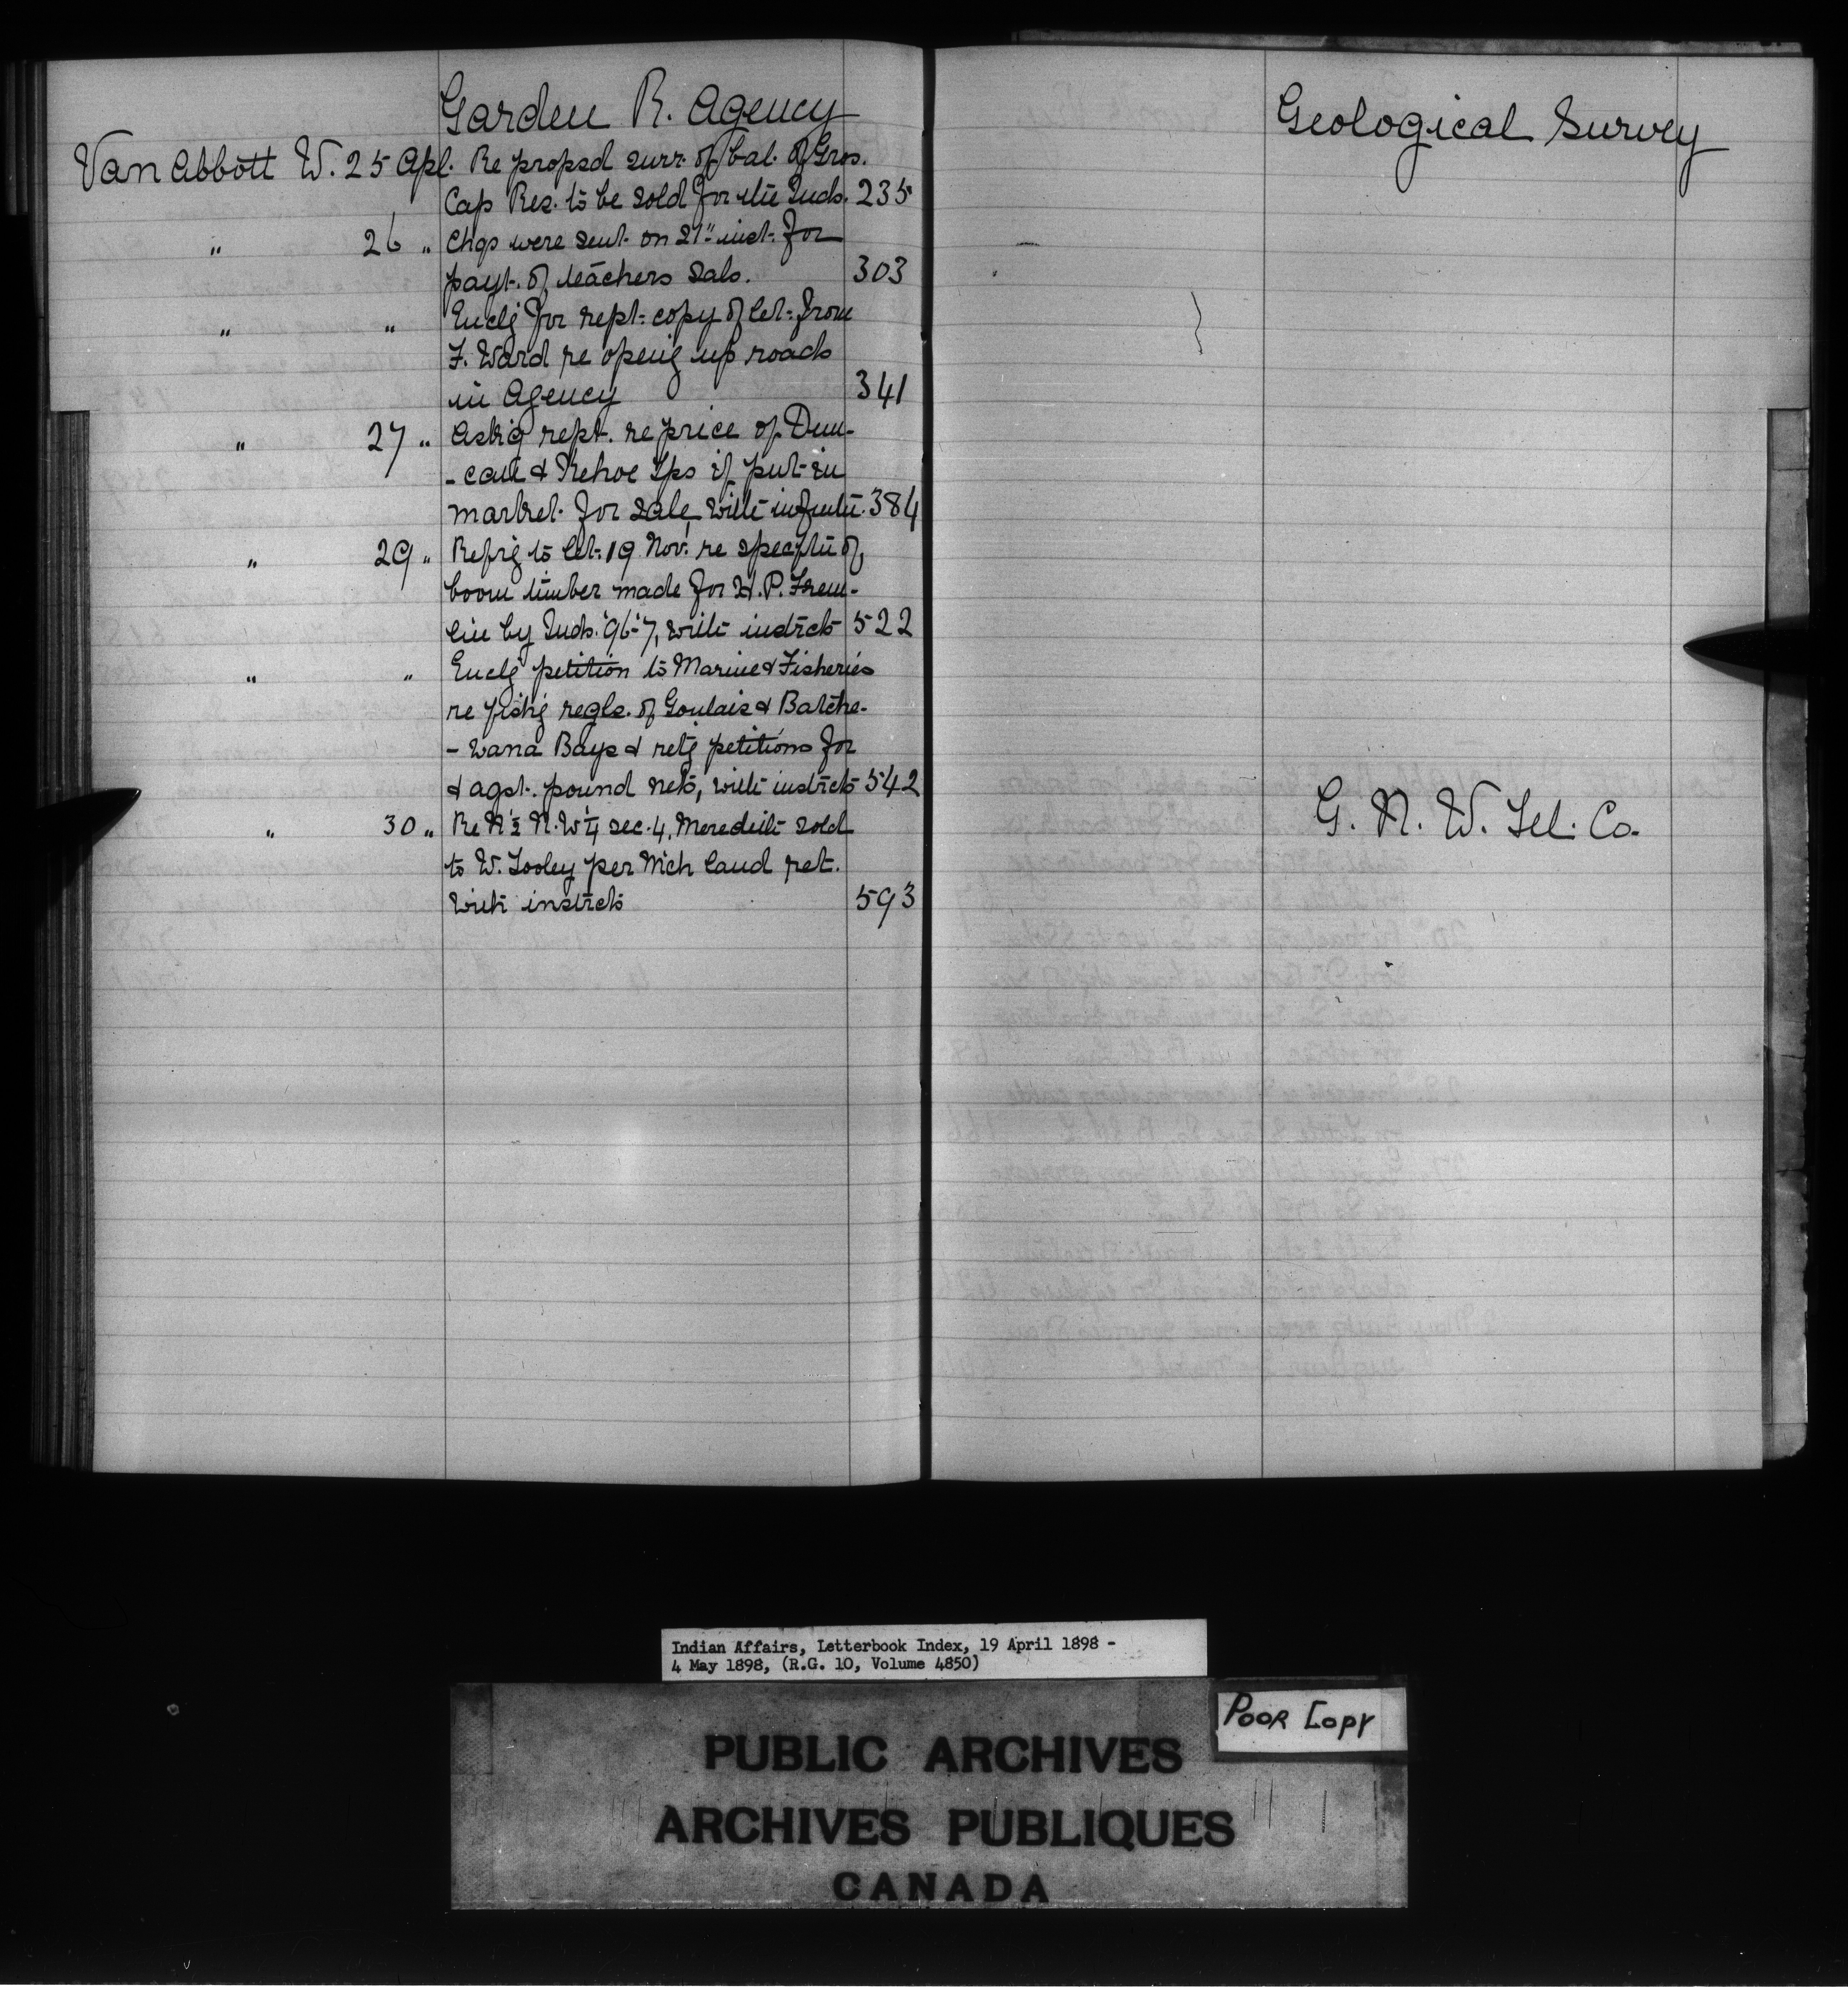 Garden R. Agency
Van Abbott W. 25 Apl. Re propsd surr. of bal. of Gros.
Cap Res. to be sold for the Inds. 235
" 26 " Chqs were sent on 21" inst. for
payt. of teachers sals. 303
" " Enclg for rept. copy of let. from
F. Ward re openg up roads
in Agency 341
" 27 " Askg rept. re price of Dun-
-can & Kehoe Tps if put in
market for sale, with 384
" 29 " Refrg to let. 19 Nov. re of
boom timber made for H. P.
by Inds. '96-'7, with instrcts 522
" " Enclg petition to Marine & Fisheries
re fishg regls. of Goulais & Batche-
-wana Bays & retg petitions for
& agst. pound nets, with instrcts 542
" 30 " Re N ½ N.W ¼ sec. 4, Meredith sold
to W. Tooley per Nich land ret.
with instrcts 593
Geological Survey
G. N. W. Tel. Co.
Indian Affairs, Letterbook Index, 19 April 1898 -
4 May 1898, (R.G. 10, Volume 4850)
POOR COPY
PUBLIC ARCHIVES
ARCHIVES PUBLIQUES
CANADA